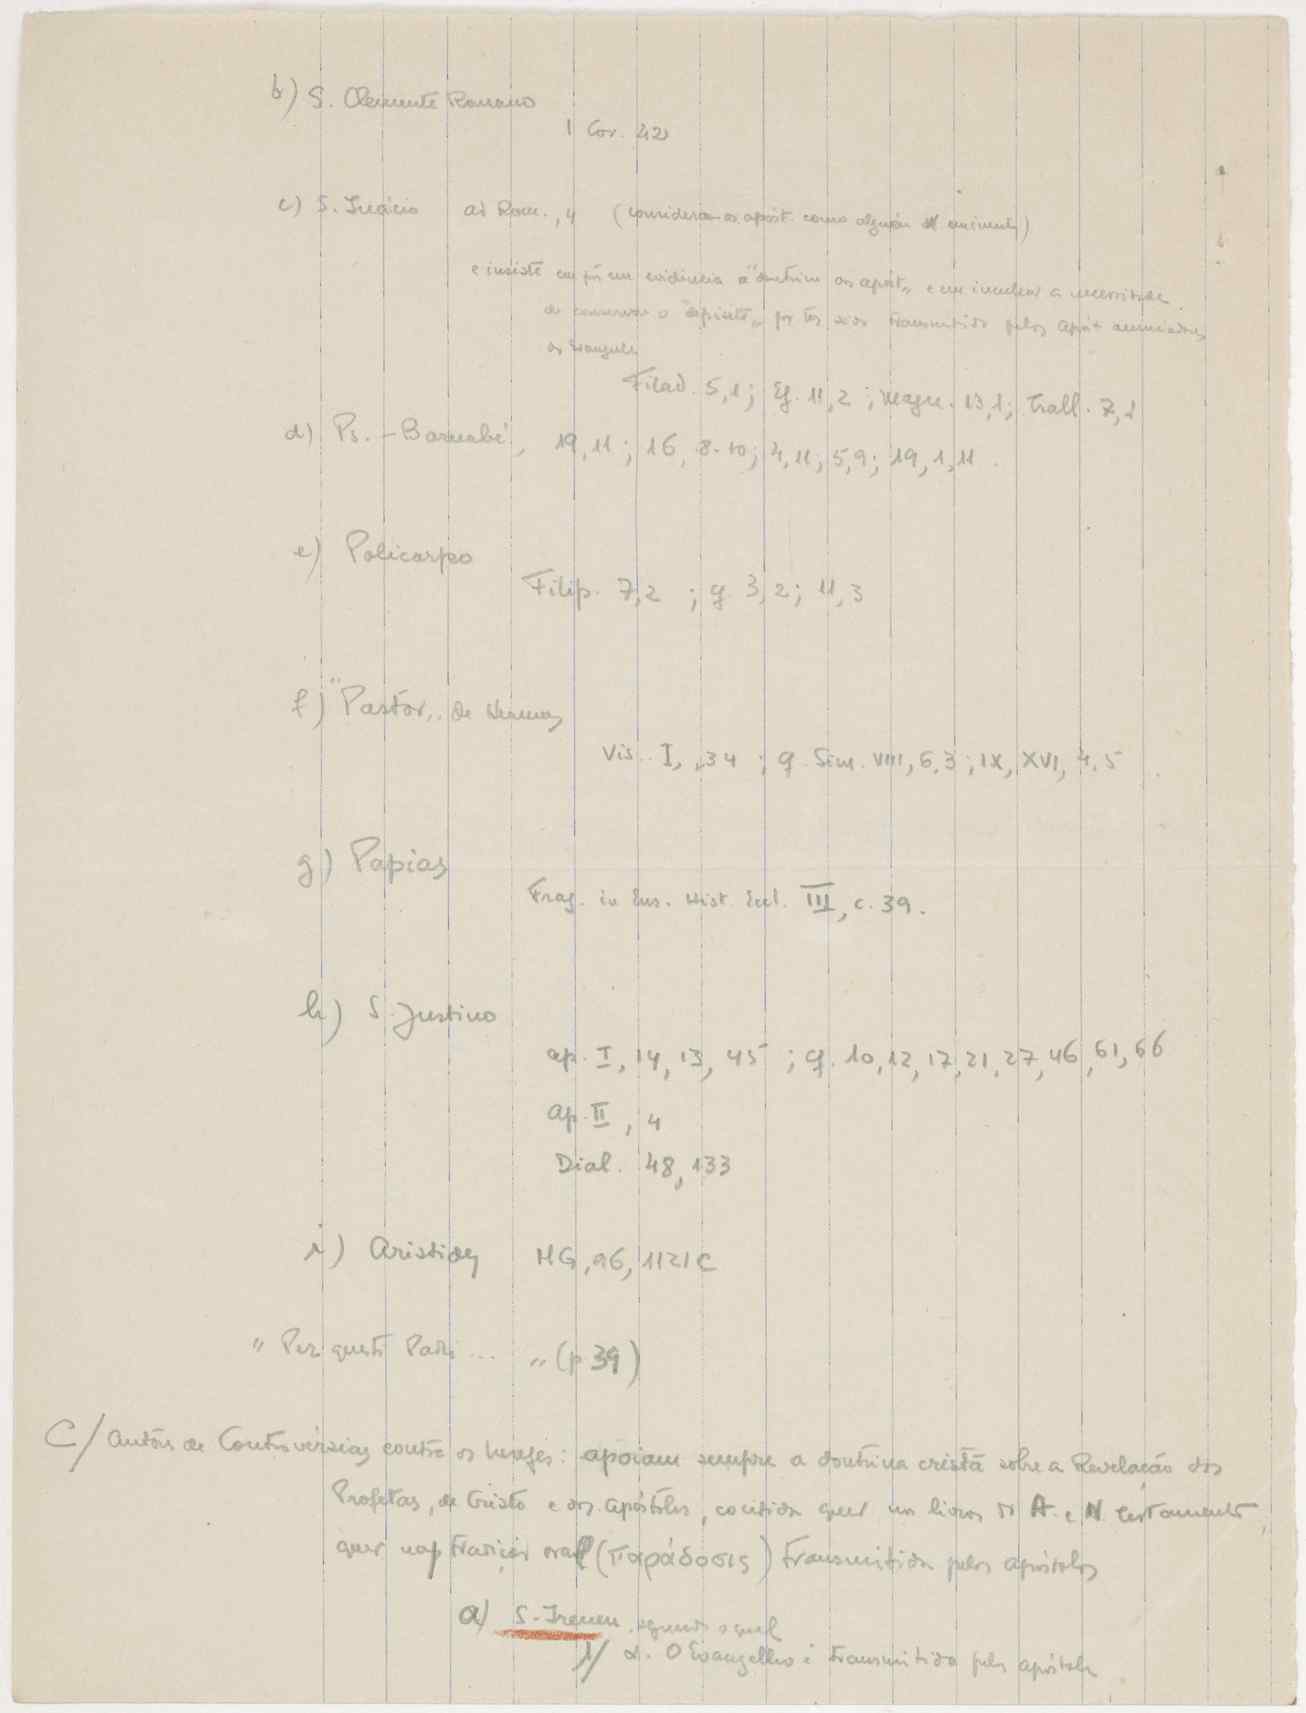 b) S. Clemente Romano
I Cor. 42
c) S. Inácio ad Rom., 4 (consideram os apóst. como alguém eminente)
e insiste em pôr em evidência a "doutrina dos apóst." e em inculcar a necessidade
de conservar o "depósito" por ter sido transmitido pelos Apóst anunciadores
do Evangelho
Filad. 5,1; Ef. 11,2; Magn. 13,1; Trall. 7,1
d) Ps. - Barnabé, 19,11; 16, 8-10; 4,11; 5,9; 19,1,11.
e) Policarpo
Filip. 7,2 ; cf. 3,2; 11,3
f) "Pastor" de Hermas
Vis. I, 34 ; cf. Sim. VIII, 6,3; IX, XVI, 4.5
g) Papias
Frag. in Eus. Hist. Eccl. III, c. 39.
h) S. Justino
ap. I, 14, 13, 45 ; cf. 10, 12, 17, 21, 27, 46, 61, 66
Ap. II, 4
Dial. 48, 133
i) Aristides MG, 96, 1121C
" Per questi Padri ... " (p 39)
C/ Autores de Controvérsias contra os hereges: apoiam sempre a doutrina cristã sobre a Revelação dos
Profetas, de Cristo e dos Apóstolos, contida quer nos livros do A. e N. testamento,
quer na tradição oral (παράδοσις) transmitida pelos apóstolos
a) S. Ireneu, segundo o qual
1/ α. O Evangelho é transmitido pelos apóstolos